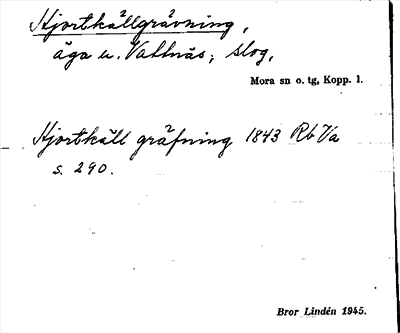 Hjortkällgrävning,
äga u. Vattnäs, skog,
Mora sn o. tg, Kopp. l.
Hjortkäll gräfning 1843 Rb Va
s. 290.
Bror Lindén 1945.